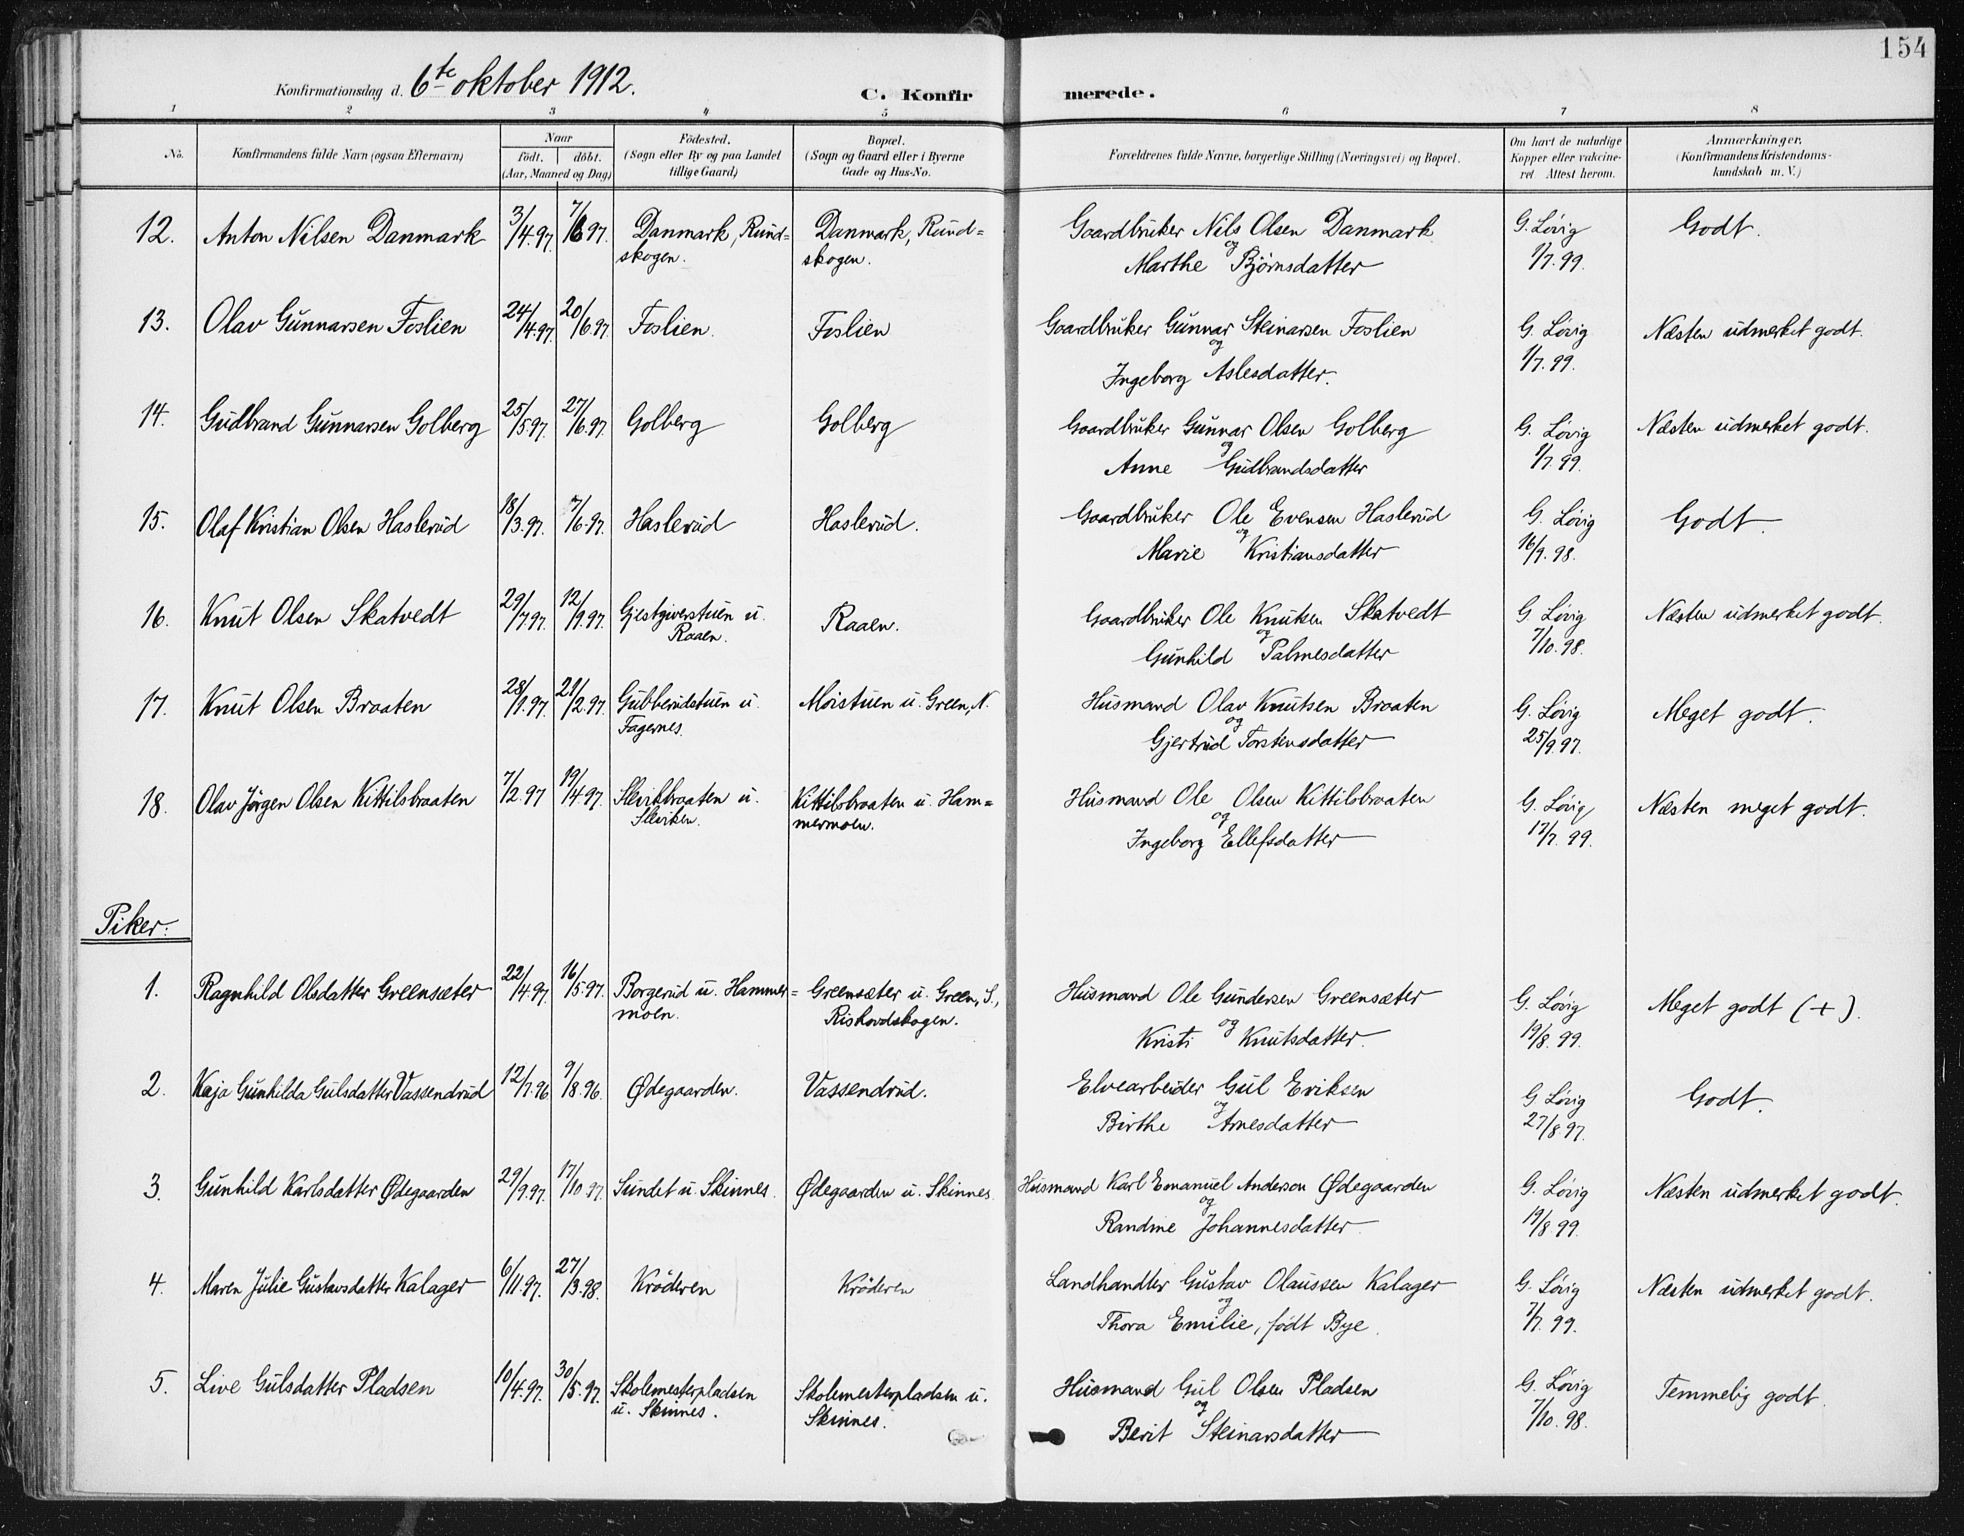 154
Konfirmationsdag d. 6te oktober 1912. C. Konfirmerede.
1 2 3 4 5 6 7 8
No. Konfirmandens fulde Navn (ogsaa Efternavn) Naar født. døbt. (Aar, Maaned og Dag) Fødested. (Sogn eller By og paa Landet tillige Gaard) Bopæl. (Sogn og Gaard eller i Byerne Gade og Hus-No. Forældrenes fulde Navne, borgerlige Stilling (Næringsvei) og Bopæl. Om havt de naturlige Kopper eller vakcineret. Attest herom. Anmærkninger. (Konfirmandens Kristendomskundskab m. V.)
12. Anton Nilsen Danmark 3/4.97 7/6 97. Danmark, Rund= Danmark, Rund= Gaardbruker Nils Olsen Danmark G. Lövig Godt.
skogen. skogen. og Marthe Björnsdatter 1/7.99.
13. Olav Gunnarsen Foslien 24/4.97 20/6.97 Foslien. Foslien Gaardbruker Gunnar Steinarsen Foslien G. Lövig Næsten udmerket godt.
og Ingeborg Aslesdatter. 1/7.99.
14. Gudbrand Gunnarsen Golberg 25/5 97. 27/6.97. Golberg Golberg Gaardbruker Gunnar Olsen Golberg G. Lövig Næsten udmerket godt.
Anne og Gudbrandsdatter 1/7.99.
15. Olaf Kristian Olsen Haslerud 18/3.97. 7/6.97. Haslerud Haslerud. Gaardbruker Ole Evensen Haslerud G. Lövig Godt.
Marie og Kristiansdatter 16/9.98.
16. Knut Olsen Skatvedt 29/7 97. 12/9.97. Gjestgiverstuen u. Raaen. Gaardbruker Ole Knutsen Skatvedt G. Lövig Næsten udmerket godt.
Raaen. Gunhild og Palmesdatter 7/10.98.
17. Knut Olsen Braaten 28/1.97. 21/2.97. Gubberudstuen u. Moistuen u. Green, N. Husmand Olav Knutsen Braaten G. Lövig Meget godt.
Fagernes. Gjertrud og Torstensdatter 25/9 97.
18. Olav Jörgen Olsen Kittilsbraaten 7/2.97 19/4.97. Slevikbraaten u. Kittilsbraaten u. Ham= Husmand Ole Olsen Kittilsbraaten G. Lövig Næsten meget godt.
Sleviken. mermoen. Ingeborg og Ellefsdatter 17/7.99.
Piker:
1. Ragnhild Olsdatter Greensæter 22/4.97. 16/5.97. Borgerud u. Hammer= Greensæter u. Green, S., Husmand Ole Gundersen Greensæter G. Lövig Meget godt (+).
moen. Rishovdskogen. Kristi og Knutsdatter. 19/8.99.
2. Kaja Gunhilda Gulsdatter Vassendrud 12/7.96 9/8.96. Ødegaarden. Vassendrud. Elvearbeider Gul Eriksen G. Lövig Godt.
Birthe og Arnesdatter 27/8 97.
3. Gunhild Karlsdatter Ødegaarden 29/9.97. 17/10.97. Sundet u. Skinnes. Ødegaarden u. Skinnes. Husmand Karl Emanuel Anderson Ødegaarden G. Lövig Næsten udmerket godt.
og Randine Johannesdatter 19/8.99.
4. Maren Julie Gustavsdatter Kalager 6/11.97. 27/3.98. Kröderen Kröderen Landhandler Gustav Olaussen Kalager G. Lövig Næsten udmerket godt.
og Thora Emilie, födt Bye. 7/7.99.
5. Live Gulsdatter Pladsen 10/4.97. 30/5.97. Skolemesterpladsen Skolemesterpladsen u. Husmand Gul Olsen Pladsen G. Lövig Temmelig godt.
u. Skinnes. Skinnes. og Berit Steinarsdatter 7/10.98.